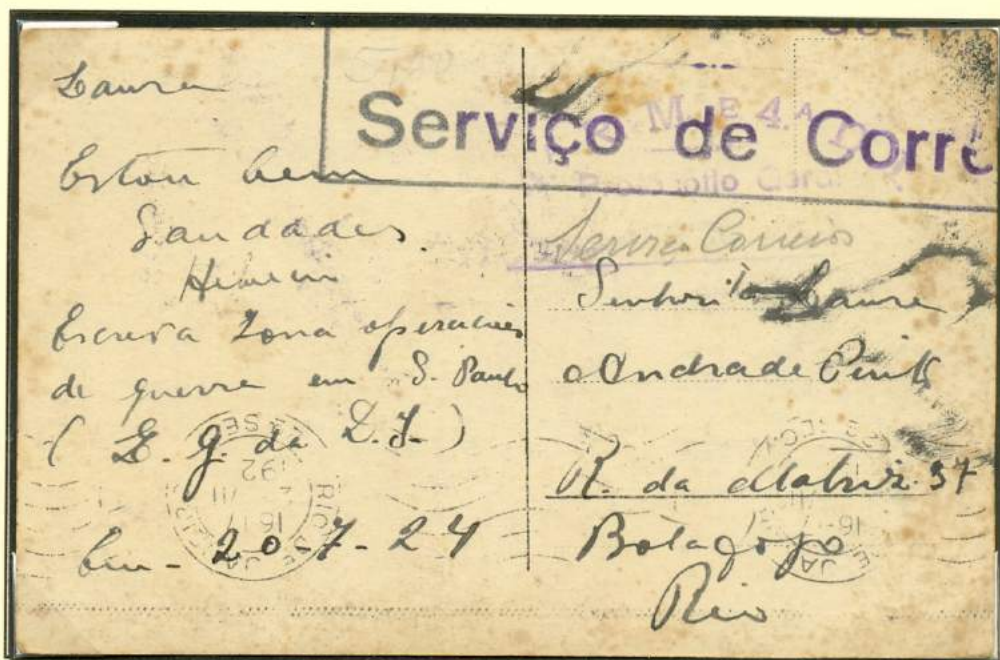 Laura
Estou bem
Saudades.
Escreva Zona operações
de guerra em S. Paulo
( da D.I.)
Em - 20-7-24
Serviço de Corre
M E 4.A
Serviço Correios
Senhorita Laura
Andrade
R. da Matriz 37
Botafogo
Rio